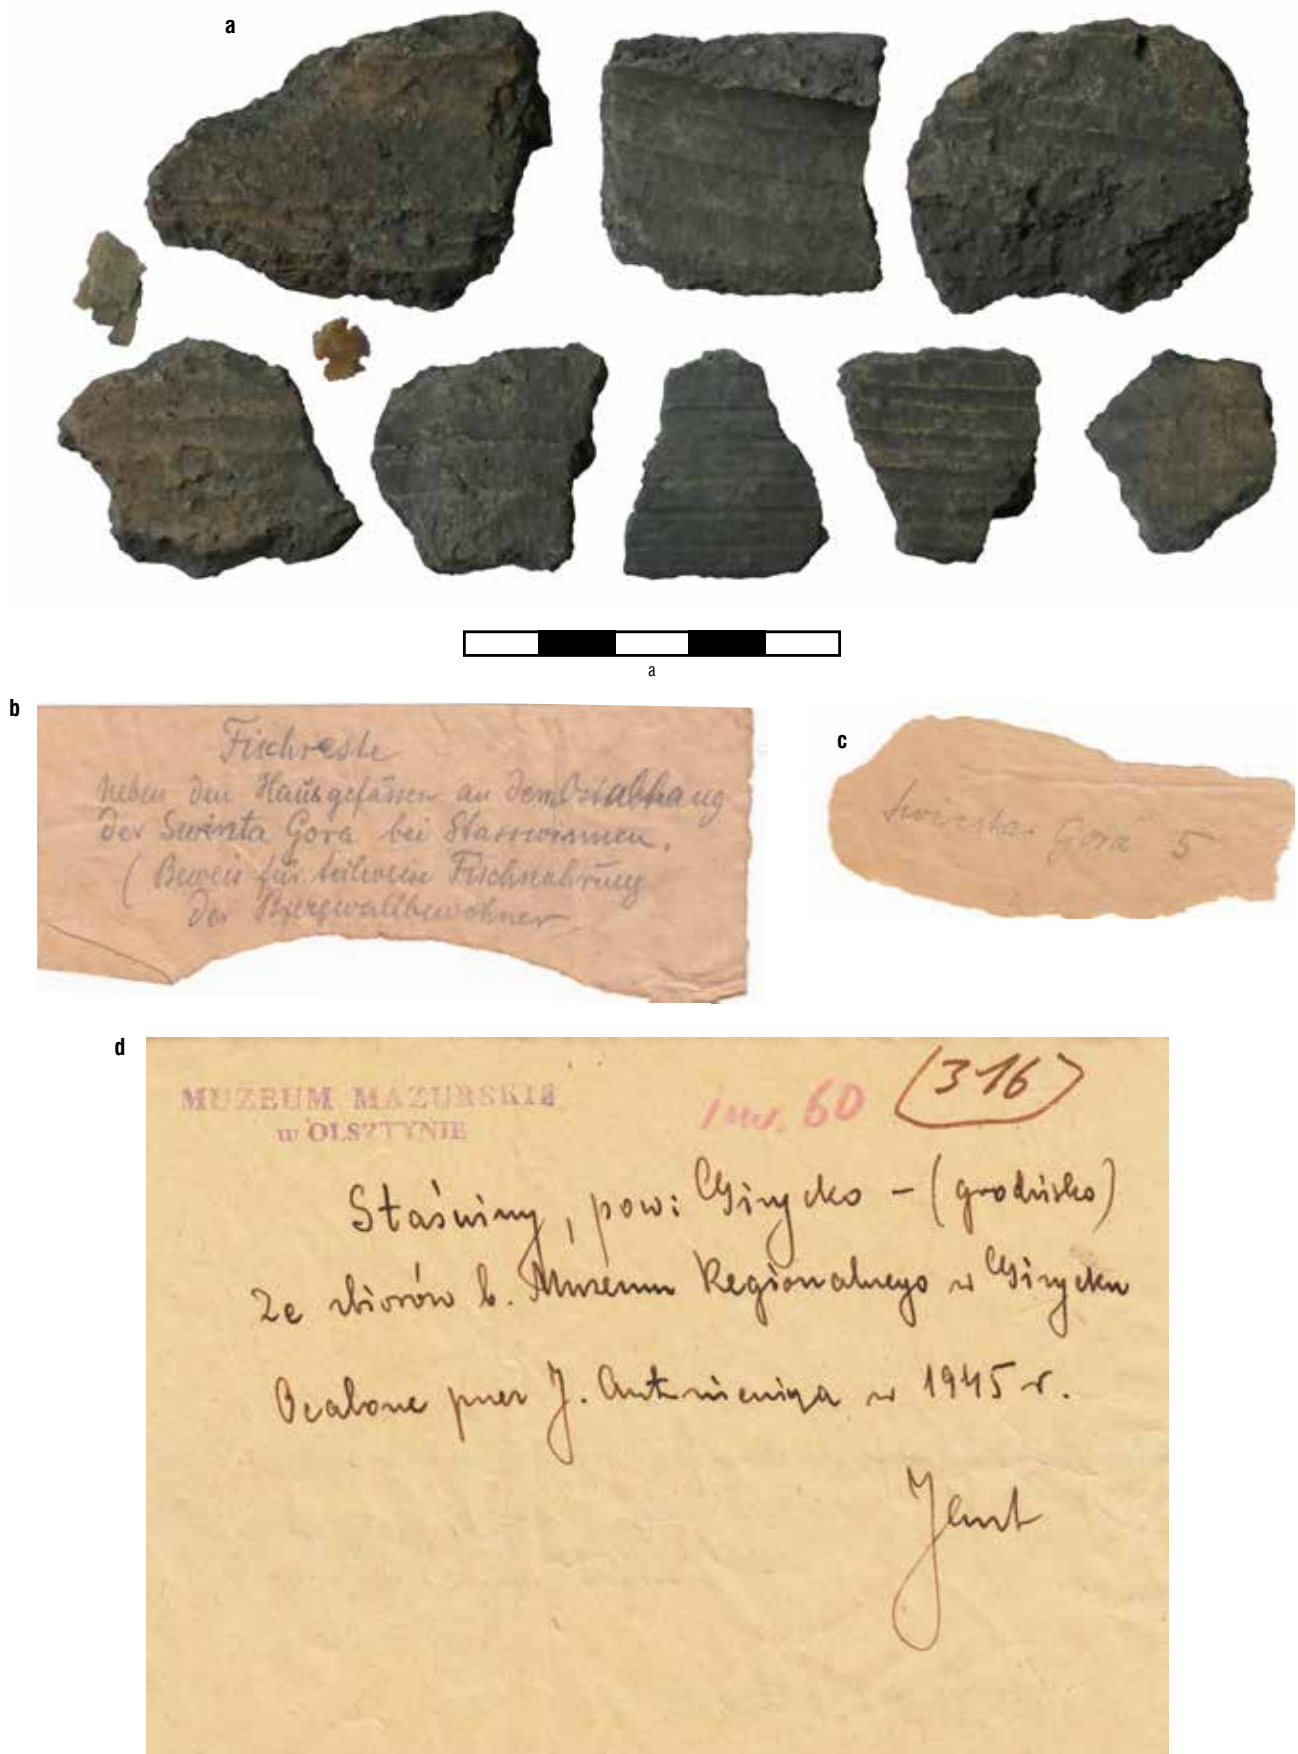 a
a
b
Fischreste
neben den Hausgefässen an dem Ostabhang
der Swinta Gora bei Stasswinnen.
( Beweis für teilweise Fischnahrung
der Burgwallbewohner
c
Swinta Gora 5
d
MUZEUM MAZURSKIE
w OLSZTYNIE
inw. 60
(316)
Staświny, pow: Giżycko - (grodzisko)
Ze zbiorów b. Muzeum Regionalnego w Giżycku
Ocalone przez J. Antoniewicza w 1945 r.